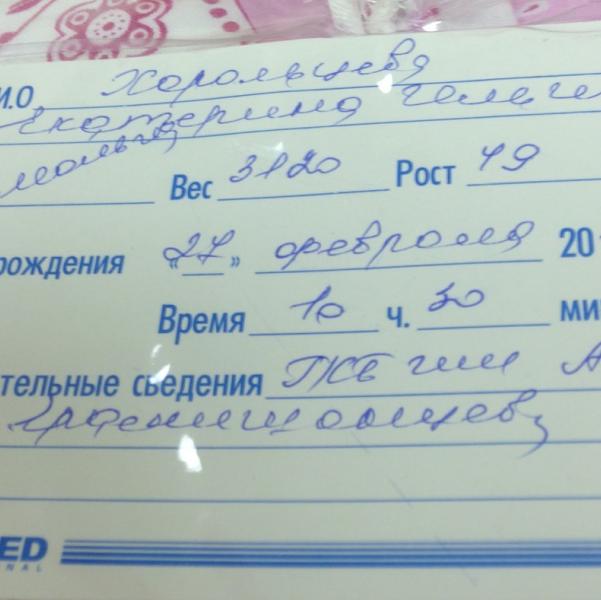 И.О Хорольцева
Екатерина
мальч Вес 3120 Рост 49
рождения «27» февраля 20
Время 10 ч. 30 ми
тельные сведения ГКБ им А
ED
NAL